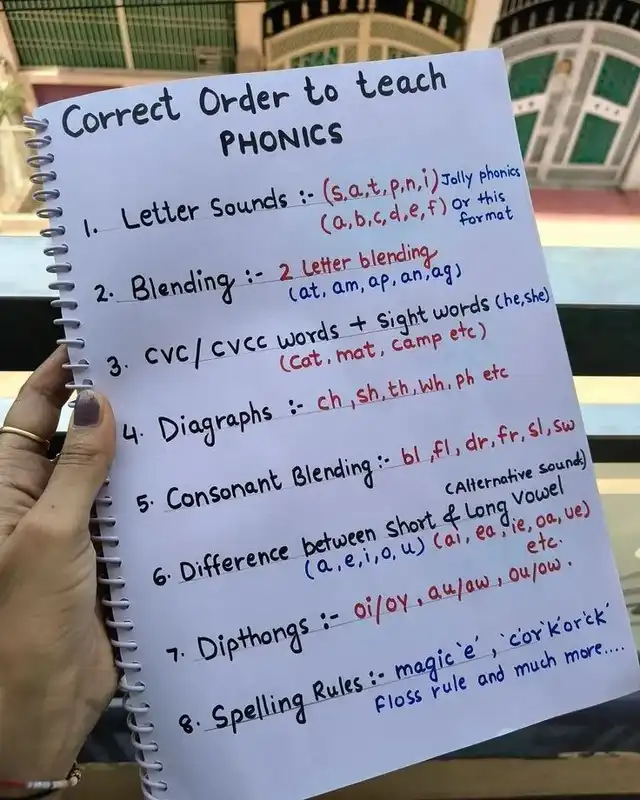 Correct Order to teach
PHONICS
1. Letter Sounds :- (s,a,t,p,n,i) Jolly phonics
(a,b,c,d,e,f) or this
format
2. Blending :- 2 Letter blending
(at, am, ap, an, ag)
3. CVC/CVCC words + Sight words (he,she)
(Cat, mat, camp etc)
4. Diagraphs :- ch, sh, th, wh, ph etc
5. Consonant Blending :- bl, fl, dr, fr, sl, sw
(Alternative sounds)
6. Difference between short & Long Vowel
(a,e,i,o,u) (ai, ea, ie, oa, ue)
etc.
7. Dipthongs :- oi/oy, au/aw, ou/ow.
8. Spelling Rules :- magic 'e', 'c'or'k'or'ck'
Floss rule and much more....